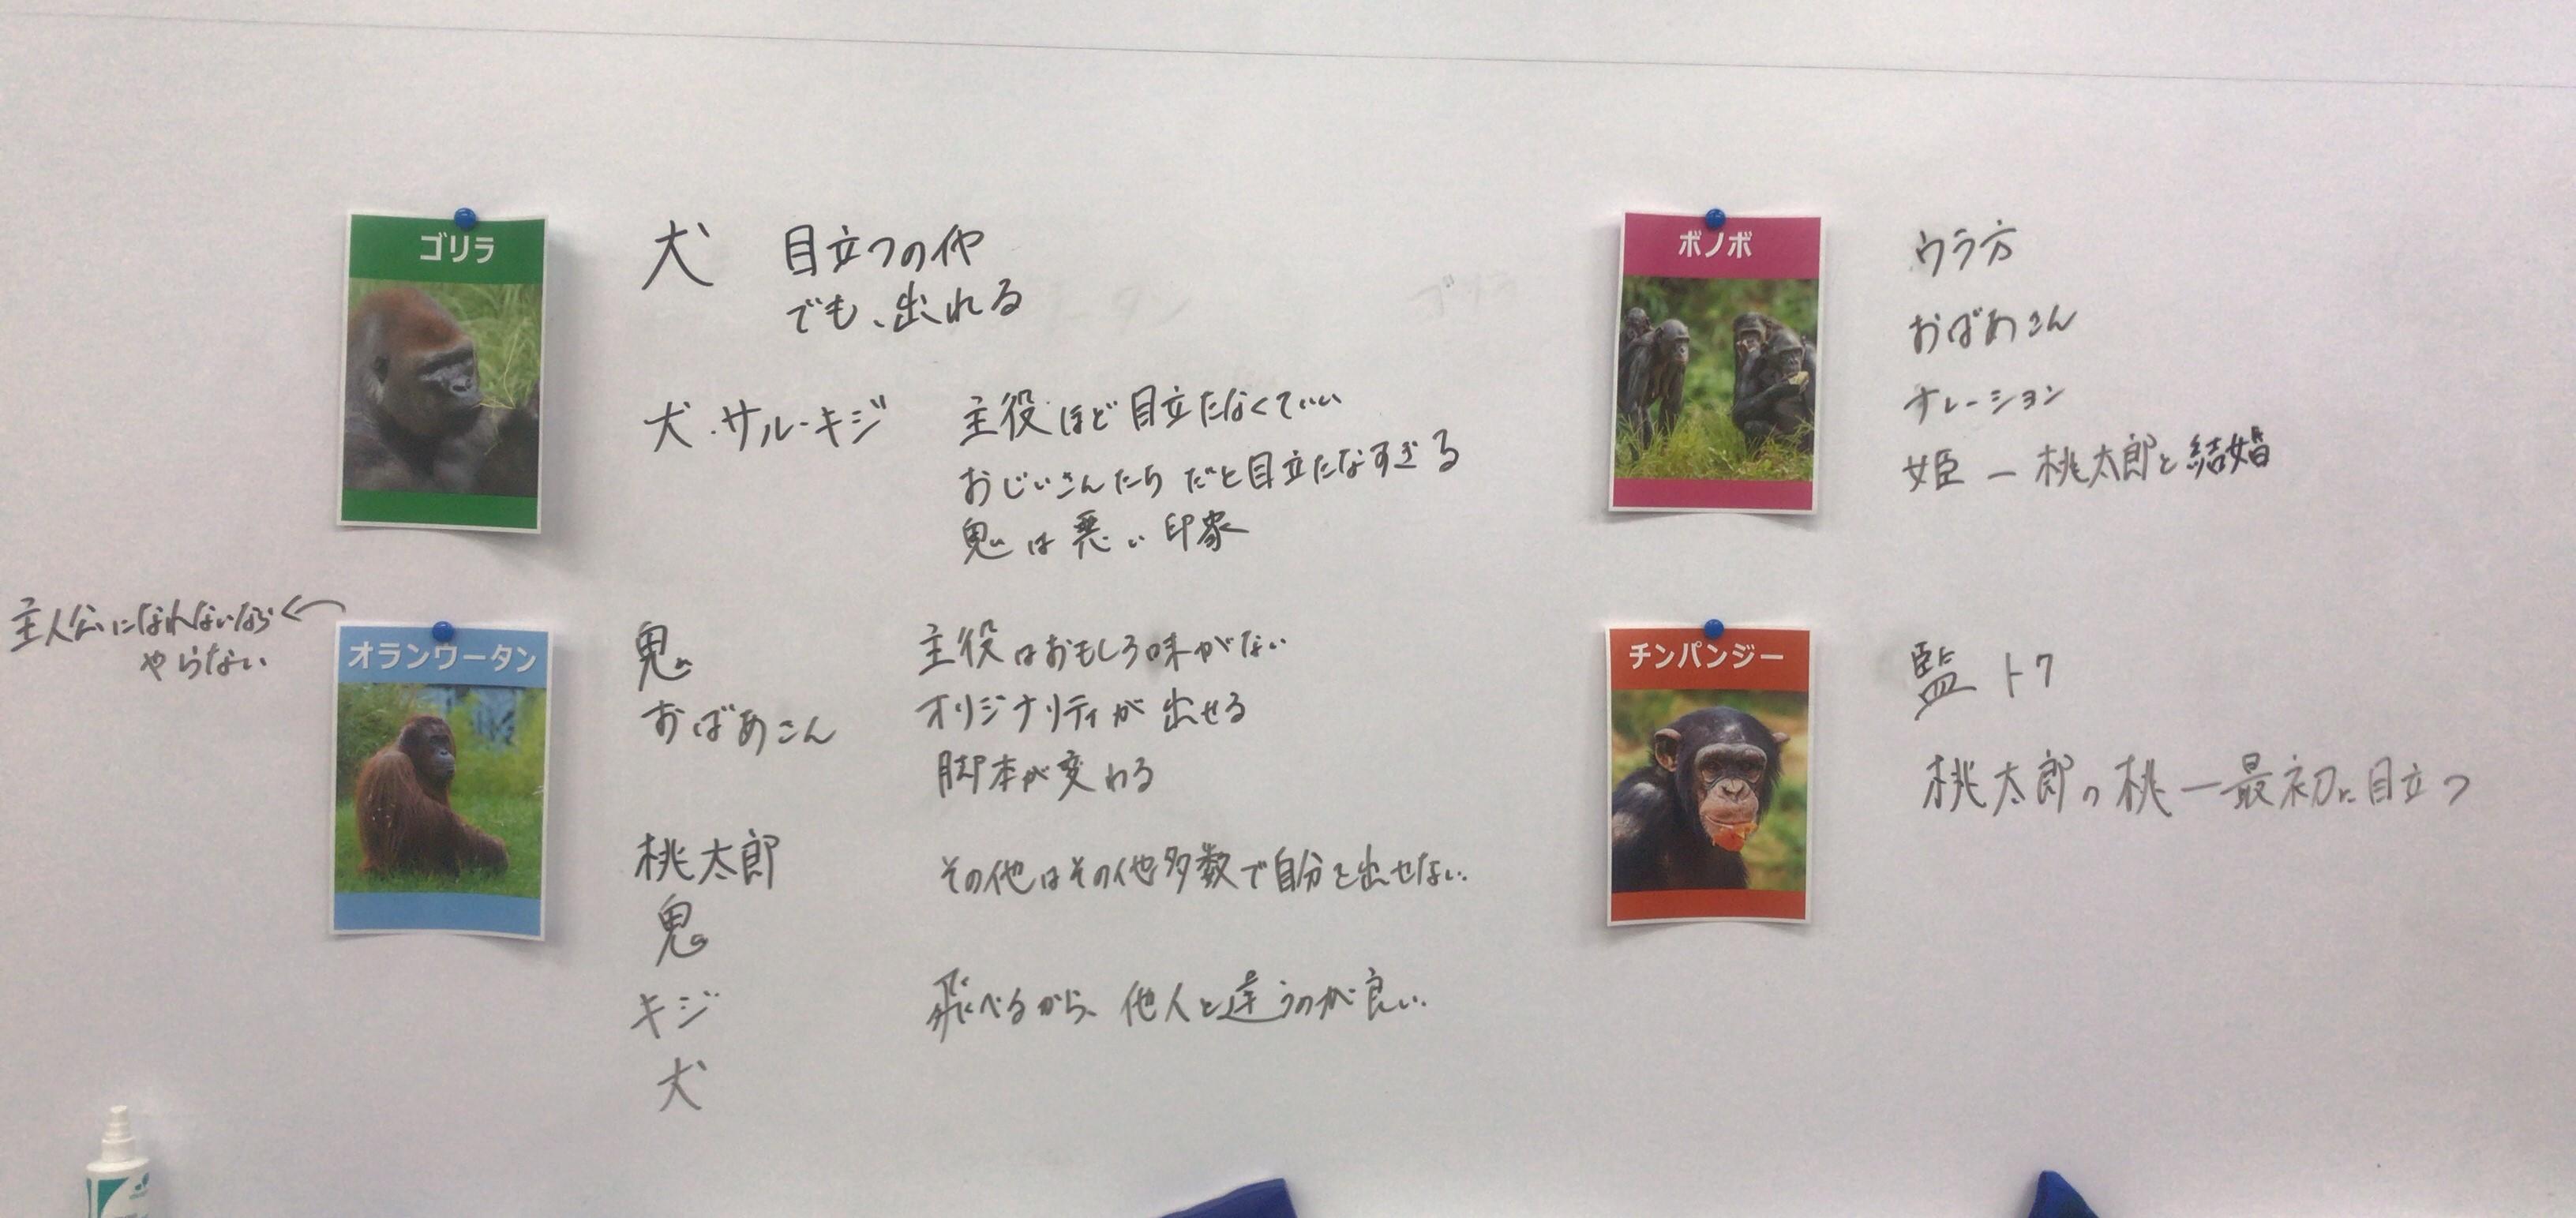 ゴリラ
犬 目立つのイヤ
でも、出れる
犬・サル・キジ 主役ほど目立たなくていい
おじいさんたちだと目立たなすぎる
鬼は悪い印象
主人公になれないなら
やらない
オランウータン
鬼 主役はおもしろ味がない
おばあさん オリジナリティが出せる
脚本が変わる
桃太郎 その他はその他多数で自分を出せない。
鬼
キジ 飛べるから、他人と違うのが良い。
犬
ボノボ
ウラ方
おばあさん
ナレーション
姫 ー 桃太郎と結婚
チンパンジー
監トク
桃太郎の桃 ー 最初に目立つ